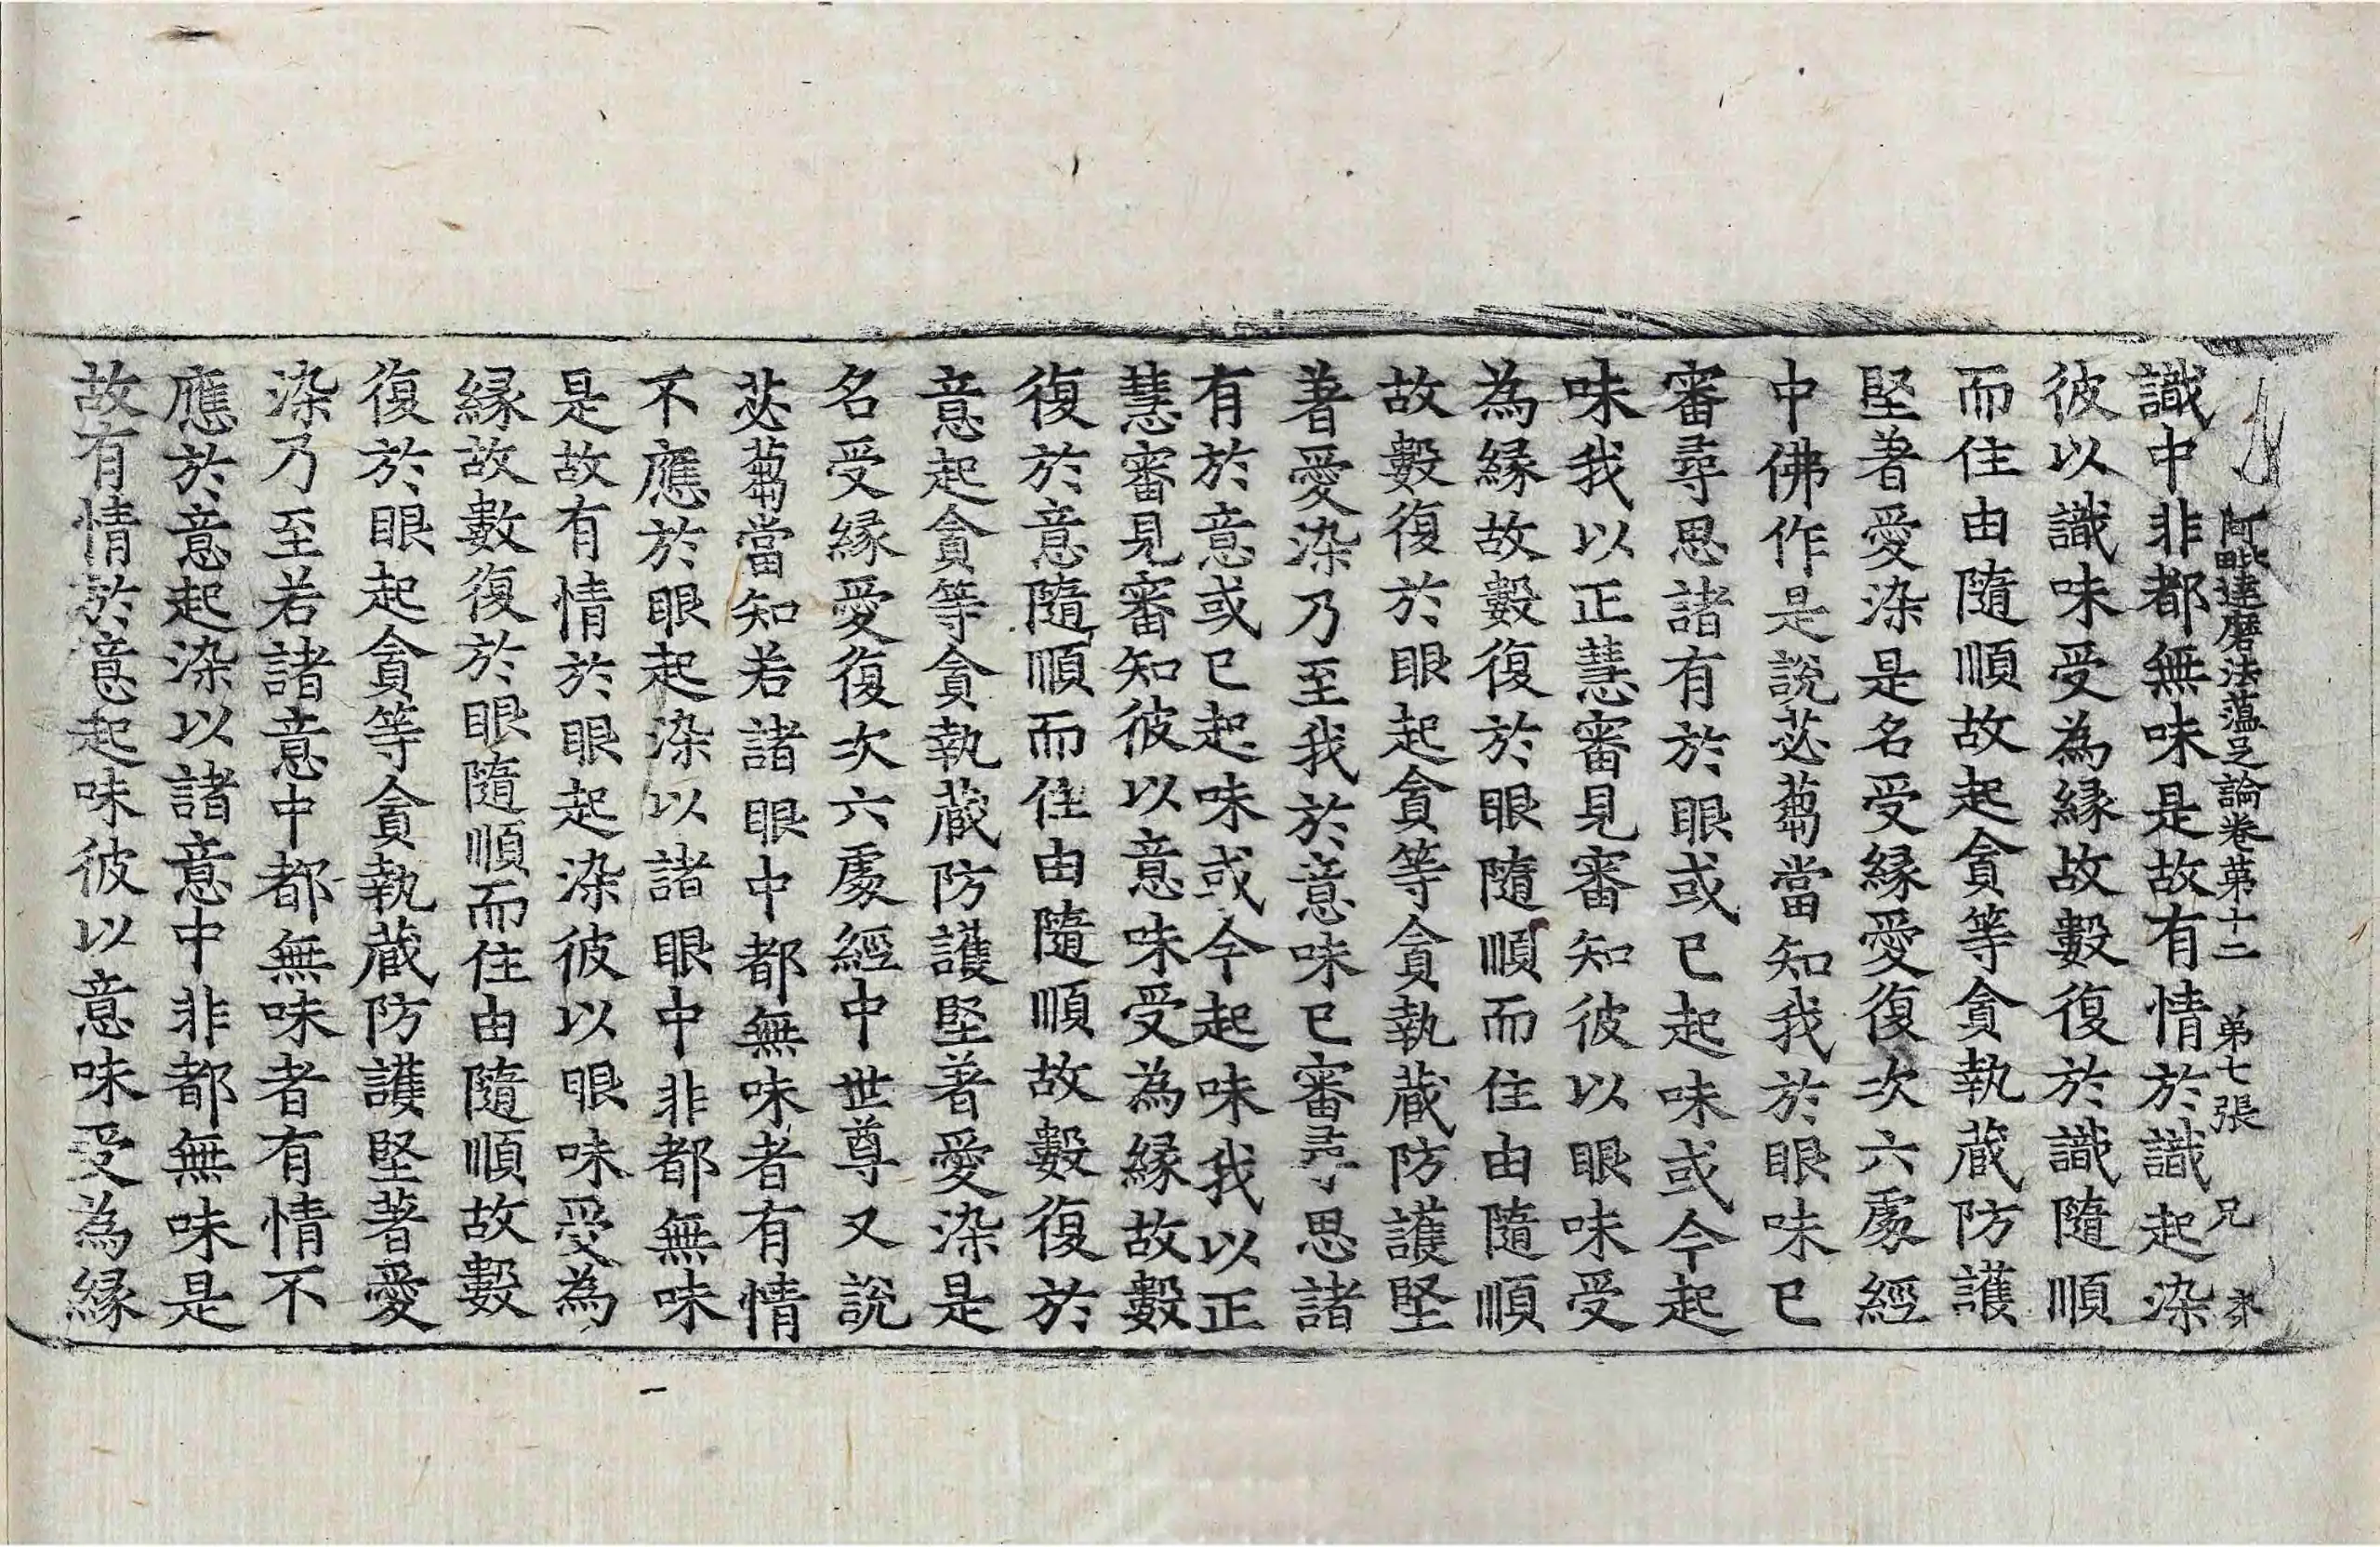 阿毗達磨法蘊足論卷第十二 第七張 兄
識中非都無味是故有情於識起染
彼以識味受為緣故數復於識隨順
而住由隨順故起貪等貪執藏防護
堅著愛染是名受緣愛復次六處經
中佛作是說苾蒭當知我於眼味已
審尋思諸有於眼或已起味或今起
味我以正慧審見審知彼以眼味受
為緣故數復於眼隨順而住由隨順
故數復於眼起貪等貪執藏防護堅
著愛染乃至我於意味已審尋思諸
有於意或已起味或今起味我以正
慧審見審知彼以意味受為緣故數
復於意隨順而住由隨順故數復於
意起貪等貪執藏防護堅著愛染是
名受緣愛復次六處經中世尊又說
苾蒭當知若諸眼中都無味者有情
不應於眼起染以諸眼中非都無味
是故有情於眼起染彼以眼味受為
緣故數復於眼隨順而住由隨順故數
復於眼起貪等貪執藏防護堅著愛
染乃至若諸意中都無味者有情不
應於意起染以諸意中非都無味是
故有情於意起味彼以意味受為緣